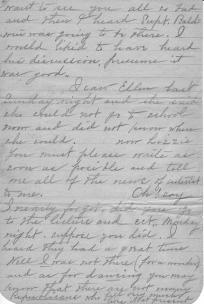 want to see you all so bad
and then I heard Supt. Bald
win was going to be there. I
would liked to have heard
his discussion, presume it
was good.
I saw Ellen last
Sunday night and she said
she could not go to school
now and did not know when
she would. now Lizzie
You must please write as
soon as possible and tell
me all of the news of interest
to me.
I nearly
to the lecture and Monday
night. suppose you did. I
heard they had a great time
Well I was not there (for a wonder)
and as for dancing you may
know that there are not many